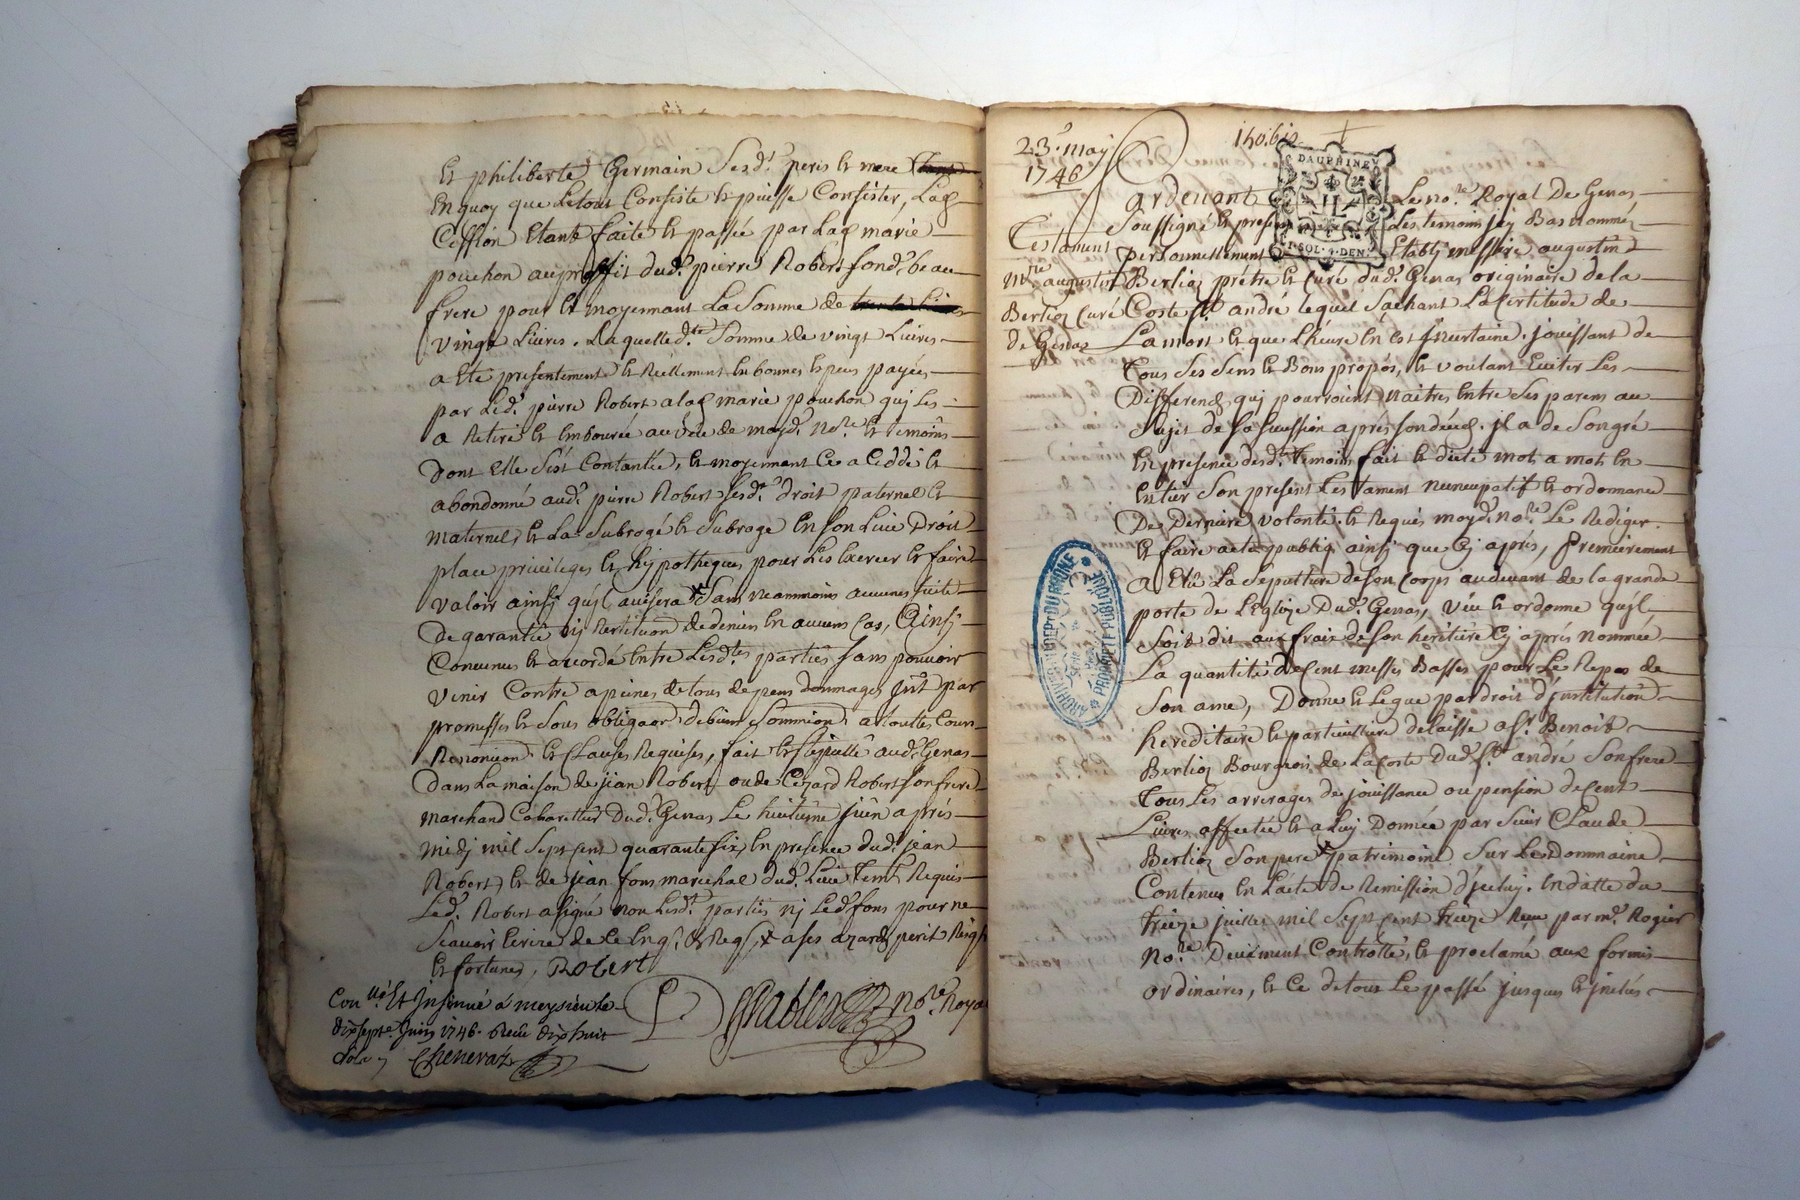 Et philiberte Germain Sesd.ts peres et mere
En quoy que Le tout Consiste et puisse Consister, Lad.
Cession Etante faite et passée par Lad. marie
pouchon au proffit dud. pierre Robert son d. beau
frere pour et moyennant La Somme de
vingt Livres. Laquelle d.te Somme de vingt Livres
a Eté presentement et Réellement En bonnes Especes payée
par Led. pierre Robert a lad. marie pouchon quj Les
a Retiré et Emboursé au veu de moyd. No.re et temoins
Dont Elle S'est Contantée, et moyennant Ce a Ceddé et
abondonné aud. pierre Robert Sesd.ts droit paternel et
maternel, et La Subrogé et Subroge En son Lieu Droit
place privileges et hypotheques pour Les Exercer et faire
valoir ainsj qu'jl avisera Sans neammoins aucune suite
De garantie nj Restitution de deniers En aucuns Cas, Ainsj
Convenus et accordé Entre Lesd.tes parties sans pouvoir
venir Contre a peines de tous depens dommages par
promesses et Sous obliga.on de biens Sommion a touttes Cours
Renon.cion et Clauses Requises, fait et stipullé aud. Genas
Dans La maison de jean Robert ou de Cezard Robert son frere
marchand Cabarettier Dud. Genas Le huitieme juin après
midj mil Sept Cent quarante six, En presence dud. jean
Robert, et de jean fons marechal dud. Lieu tem.s Requis
Led. Robert a signé non Lesd.ts parties nj Led. fons pour ne
Scavoir Ecrire de Ce Enq.s et Req.s, x a ses azards peril Risq
et fortunes, Robert
Con.llé Et Insinué á meysieu le
dix sept.e Juin 1746. Receu dix huit
sols
Chenevaz
No.re Royal
140.bis
23.e may
1746
Testament
M.re augustin
Berlioz Curé
de Genas
DAUPHINÉ
1.SOL.4.DEN.
Pardevant Le no.re Royal De Genas,
Soussigné et presens Les temoins Cy Bas nommés
personnellement Etablj messire augustin
Berlioz prêtre et Curé dud. Genas originaire de la
Coste S.t andré lequel Sachant La Certitude de
La mort et que L'heure En Est Jncertaine. jouissant de
tous Ses Sens et Bons propos, et voulant Eviter Les
Differends quj pourroient Naitres Entre Ses parens au
Sujet de Sa Succession après son décès. jl a de Son gré
En presence desd.ts temoins fait et dicté mot a mot En
Entier Son present testament nuncupatif et ordonnance
De Derniere volonté. et Requis moyd. no.re Le Rediger.
Et faire acte public ainsj que Cy après, premierement
a Elû La Sepulture de Son Corps au devant de la grande
porte de L'Eglize Dud. Genas, veu et ordonne qu'jl
Soit dit aux frais de son heritiere Cy après nommée
La quantité de Cent messes Basses pour Le Repos de
Son ame, Donne et Legue par droit d'jnstitution
hereditaire et particulliere delaisse a S.r Benoit
Berlioz Bourgeois de La Coste Dud. S.t andré Son frere
tous Les arrerages de jouissance ou pension de Cent
Livres affectée et a Luy Donnée par Sieur Claude
Berlioz Son pere x patrimoine Sur Les Dommaine
Contenus En L'acte de Remission d'jceluj. En datte du
treize juillet mil Sept Cent treize Receu par m.e Rogier
No.re Deuëment Controllé, et proclamé aux formes
ordinaires, et Ce de tout Le passé jusques et jnclus
ARCHIVES DU DEP.T DU RHONE
PROPRIÉTÉ PUBLIQUE